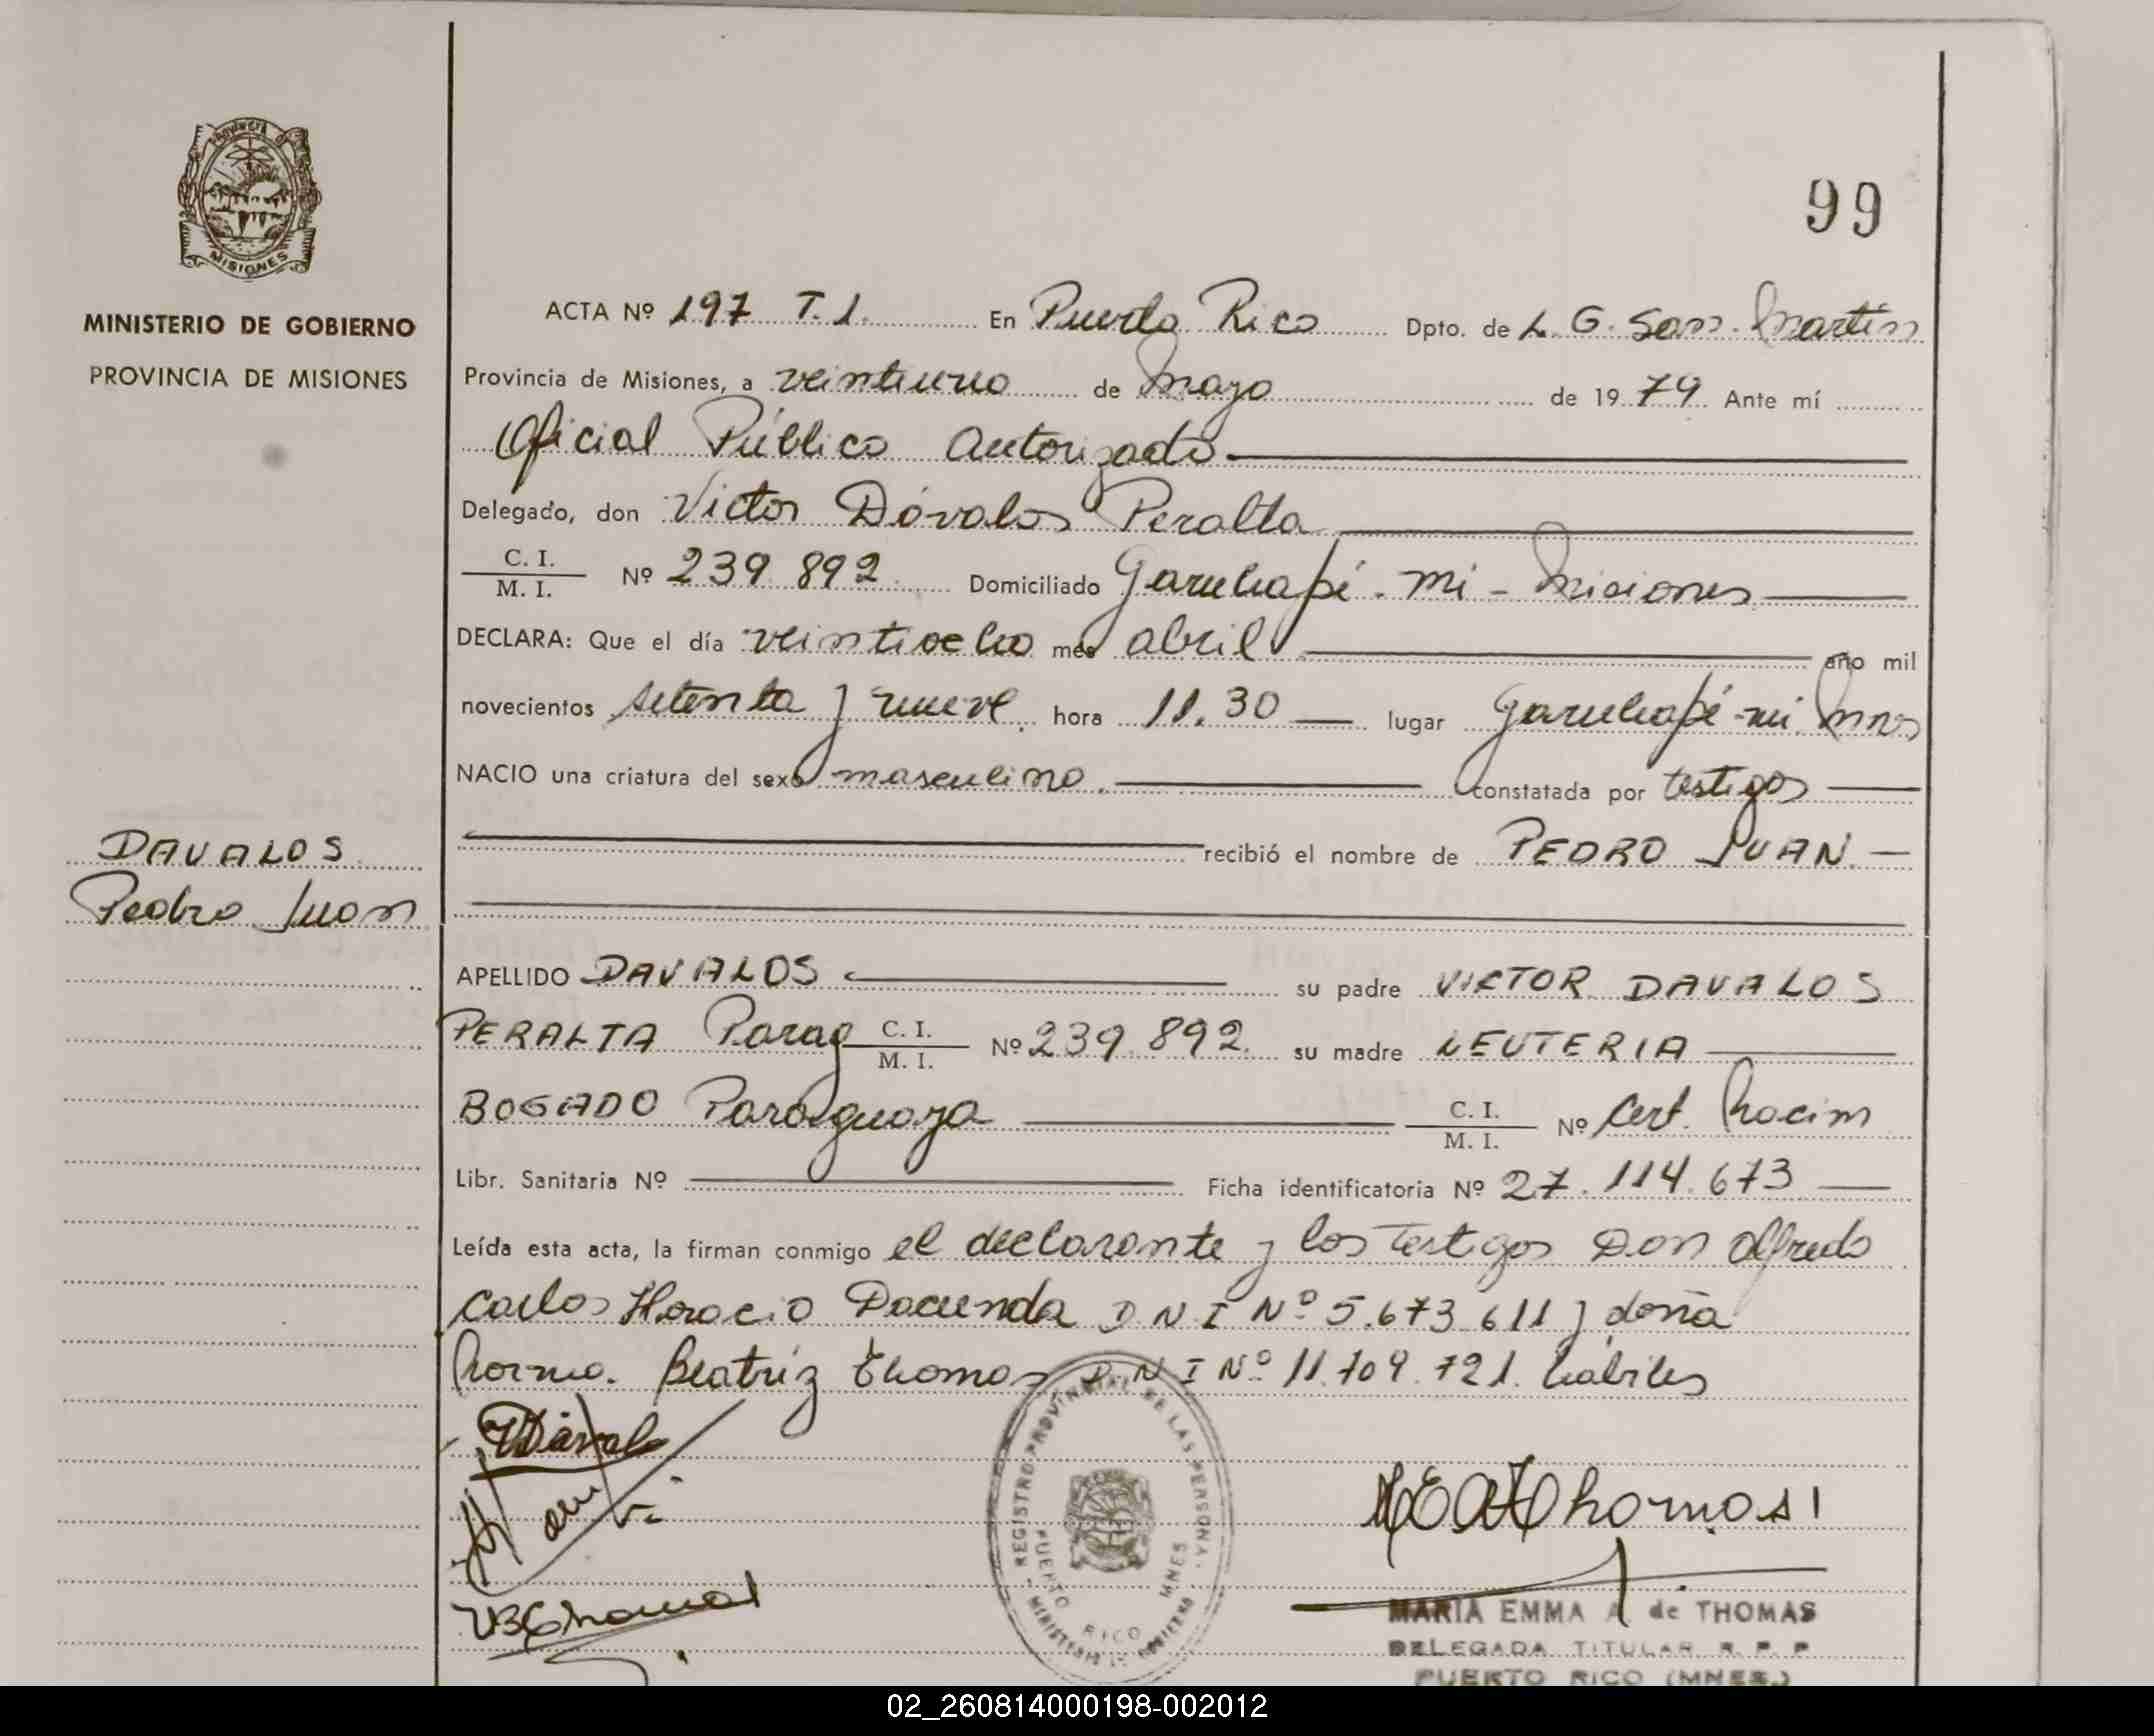 99
PROVINCIA DE
MISIONES
MINISTERIO DE GOBIERNO
PROVINCIA DE MISIONES
ACTA Nº 197 T. 1. En Puerto Rico Dpto. de L. G. San Martín
Provincia de Misiones, a veintiuno de Mayo de 1979 Ante mí
Oficial Público Autorizado
Delegado, don Victor Dávalos Peralta
C. I.
M. I. Nº 239.892 Domiciliado Garuhapé - mi - Misiones
DECLARA: Que el día veintiocho mes abril año mil
novecientos setenta y nueve. hora 11.30 lugar Garuhapé-mi. Mnes
NACIO una criatura del sexo masculino. constatada por testigos
recibió el nombre de PEDRO JUAN.
DAVALOS
Pedro Juan
APELLIDO DAVALOS su padre VICTOR DAVALOS
PERALTA Parag C. I.
M. I. Nº 239.892. su madre LEUTERIA
BOGADO Paraguaya C. I.
M. I. Nº Cert. Nacim
Libr. Sanitaria Nº Ficha identificatoria Nº 27.114.673
Leída esta acta, la firman conmigo el declarante y los Testigos Don Alfredo
Carlos Horacio Dacunda D N I Nº 5.673.611 y doña
Norma. Beatriz Thomas D. N I Nº 11.709.721. hábiles
REGISTRO PROVINCIAL DE LAS PERSONAS
PUERTO RICO MNES
MINISTERIO DE GOBIERNO
MARIA EMMA A. de THOMAS
DELEGADA TITULAR R. P. P
PUERTO RICO (MNES.)
02_260814000198-002012